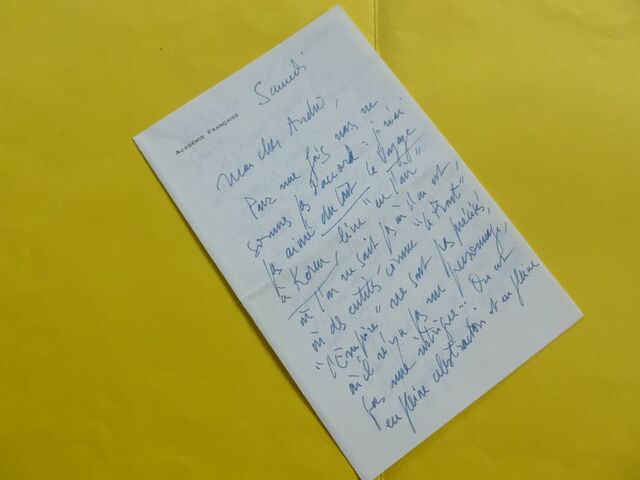 ACADÉMIE FRANÇAISE
Samedi
Mon cher André,
Pour une fois nous ne
sommes pas d'accord : je n'ai
pas aimé du tout le Voyage
à livre "en l'air"
où l'on ne sait pas où l'on est,
où des entités comme "le Front"
"l'Empire" ne sont pas précisés,
où il n'y a pas un personnage,
pas une intrigue... On est
en pleine abstraction et en pleine